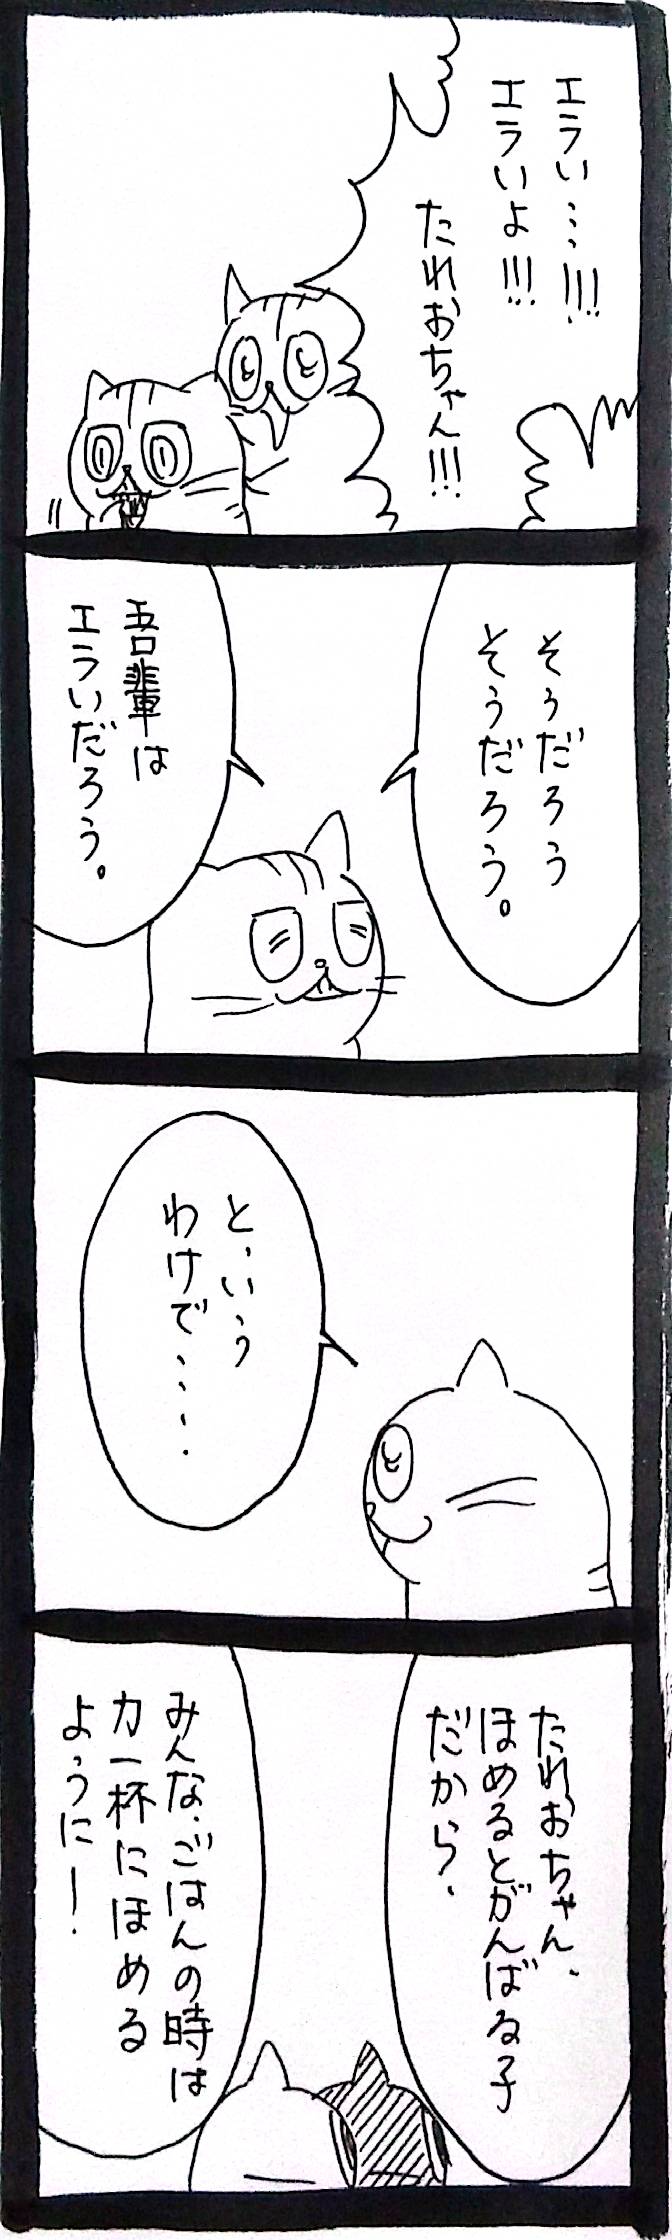 エラい…!!!
エラいよ!!!
たれおちゃん!!!
そうだろう
そうだろう。
吾輩は
エラいだろう。
と、いう
わけで・・・・
たれおちゃん、
ほめるとがんばる子
だから、
みんな、ごはんの時は
力一杯にほめる
ように!